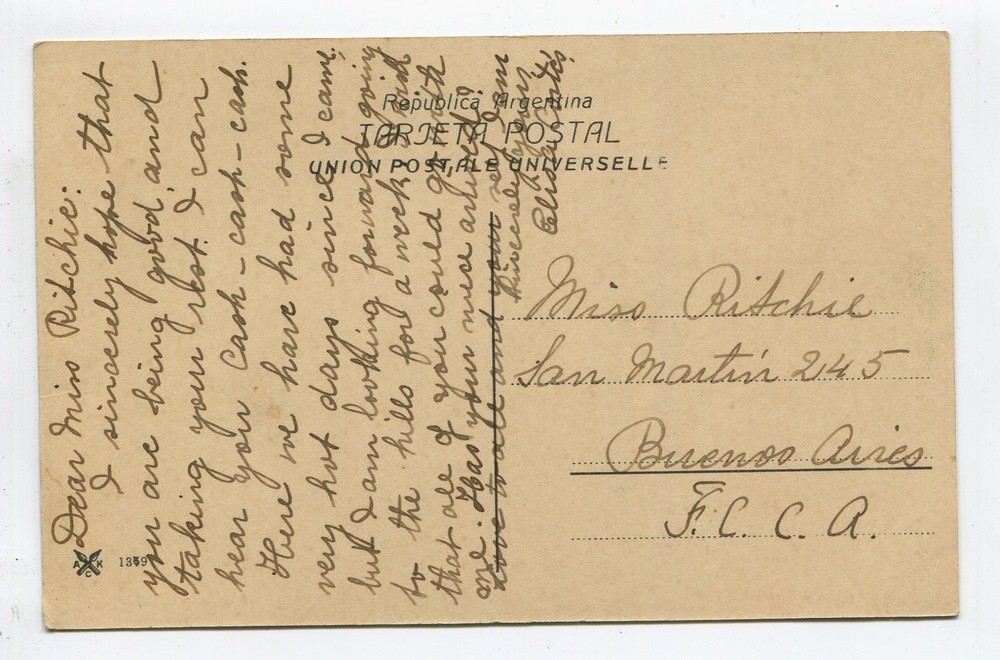 Republica Argentina
TARJETA POSTAL
UNION POSTALE UNIVERSELLE
Dear Miss Ritchie:
I sincerely hope that
you are being good and
taking your rest. I can
hear you cash-cash-cash.
Here we have had some
very hot days since I came,
but I am looking forward going
to the hills for a week. I wish
that all of you could go with
me. Has your niece arrived?
Love to all and your self I am
Sincerely yours
Miss Ritchie
San Martín 245
Buenos Aires
F. C. C. A.
A K C
1359